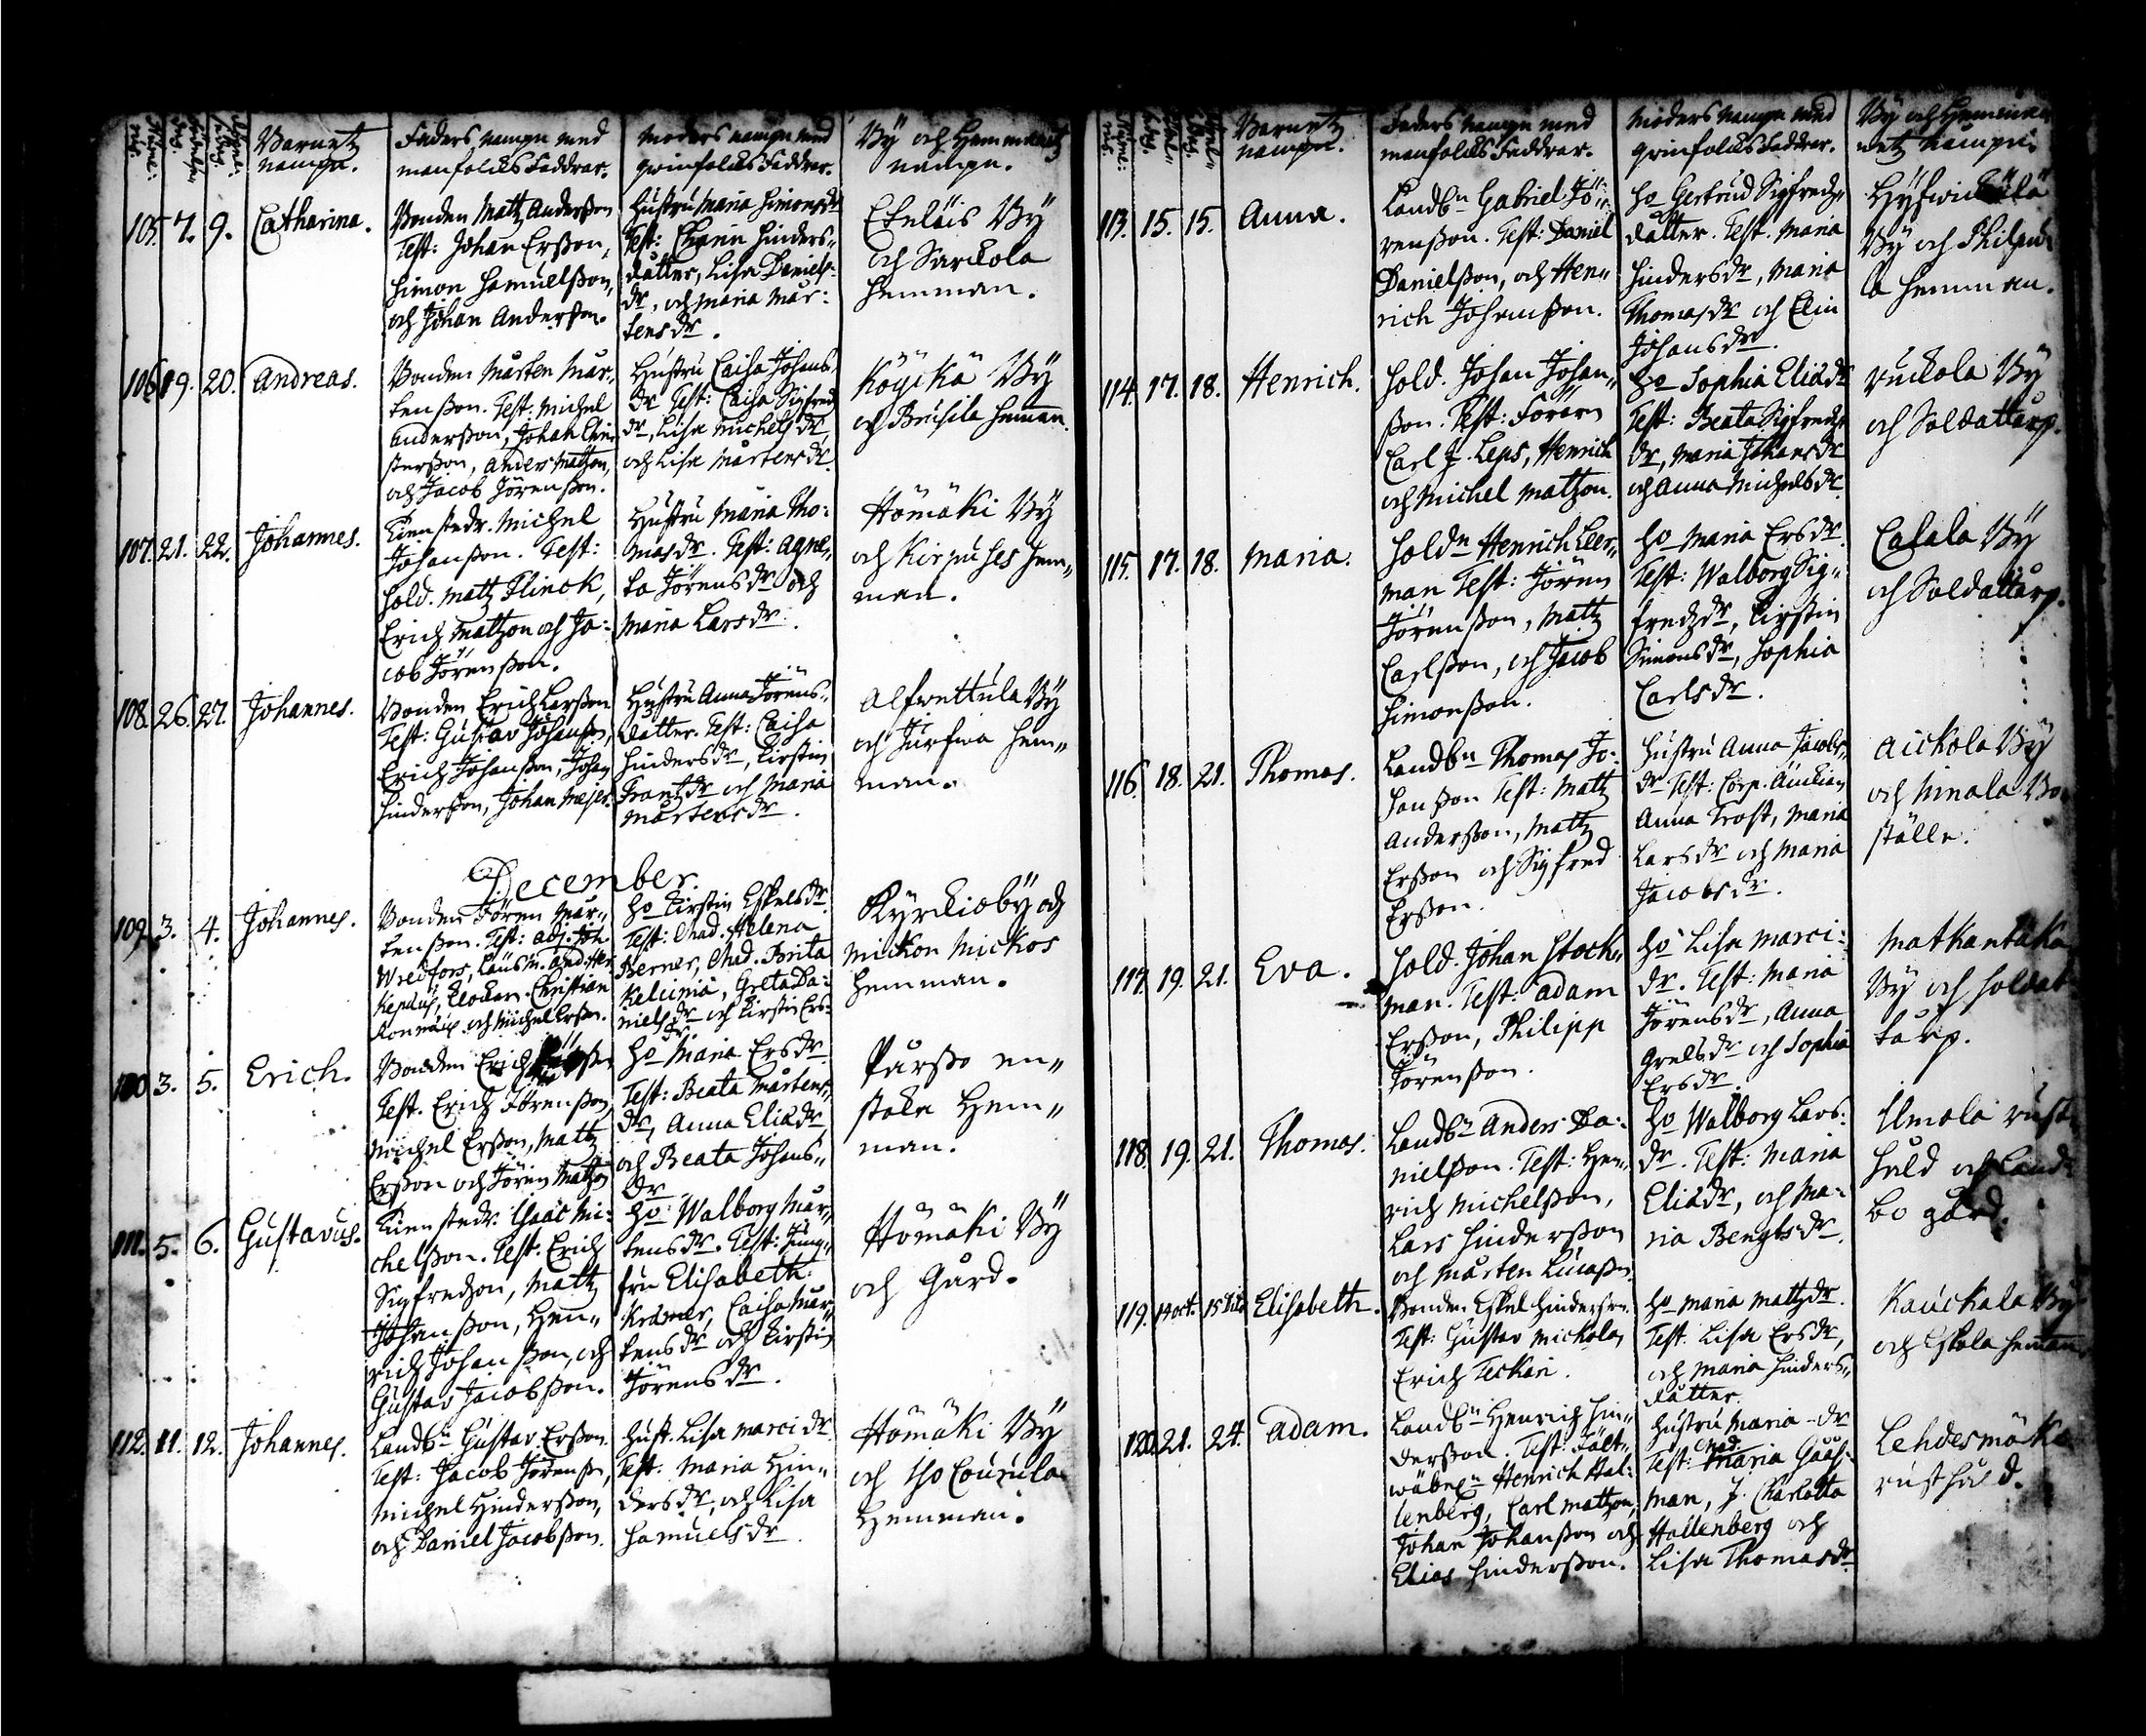 Barnetz nampn.
Faders nampn med manfolcks Faddrar.
Moders nampn med qwinfolcks Faddrar.
Bÿ och Hemmanetz nampn.
105. 7. 9. Catharina.
Bonden Mattz Anderßon
Test: Johan Erßon,
Simon Samuelßon,
och Johan Anderßon.
Hustru Maria Simonsdr
Test: Charin Hinders-
datter, Lisa Daniels-
dr, och Maria Mår-
tensdr.
Eteläis Bÿ
och Sarckola
Hemman.
106. 19. 20. Andreas.
Bonden Mårten Mår-
tenßon. Test: Michel
Anderßon, Johan Chri-
sterßon, Anders Matzon,
och Jacob Jörenßon.
Hustru Caisa Johans
dr Test: Caisa Sigfredz
dr, Lisa Michelsdr
och Lisa Mårtensdr.
Köÿckä Bÿ
och Brusila Hemman.
107. 21. 22. Johannes.
Tienstedr. Michel
Johanßon. Test:
Sold. Mattz Flinck,
Erich Matzon och Ja-
cob Jörenßon.
Hustru Maria Tho-
masdr. Test: Agne-
ta Jörensdr och
Maria Larsdr.
Hömäki Bÿ
och Kirpuses Hem-
man.
108. 26. 27. Johannes.
Bonden Erich Larßon
Test: Gustav Johanßon,
Erich Johanßon, Johan
Hinderßon, Johan Meijer.
Hustru Anna Jörens-
datter. Test: Caisa
Hindersdr, Kirstin
Frantzdr och Maria
Mårtensdr.
Alfwettula Bÿ
och Jurfwa Hem-
man.
December
109. 3. 4. Johannes.
Bonden Jören Mår-
tenßon. Test: Adj. Joh.
Wreifors, Länsm. And. Her.
Kepplus, Clockar. Christian
och Michel Erßon.
Ho Kirstin Eskelsdr.
Test: Mad. Helena
Berner, Mad. Brita
Kelunia, Greta Da-
nielsdr och Kirstin Ers-
dr
Kÿrckiobÿ och
Mickon Mickos
Hemman.
110. 3. 5. Erich.
Bonden Erich
Test. Erich Jörenßon,
Michel Erßon, Mattz
Erßon och Jören Matzon
Ho Maria Ersdr.
Test: Beata Mårtens-
dr, Anna Eliædr
och Beata Johans-
dr
Purßo en-
stake Hem-
man.
111. 5. 6. Gustavus.
Tienstedr. Isaac Mi-
chelßon. Test. Erich
Sigfredzon, Mattz
Johanßon, Hen-
rich Johanßon, och
Gustav Jacobsson.
Ho Walborg Mår-
tensdr. Test: Jung-
fru Elisabeth
Krämer, Caisa Mår-
tensdr och Kirstin
Jörensdr.
Hömäki Bÿ
och Gård.
112. 11. 12. Johannes.
Landbn Gustav Erßon.
Test: Jacob Jörenßon,
Michel Hinderßon,
och Daniel Jacobßon.
Hust. Lisa Marcidr
Test. Maria Hin-
dersdr, och Lisa
Samuelsdr
Hömäki Bÿ
och Iso Courula
Hemman.
Barnetz nampn.
Faders nampn med manfolcks Faddrar.
Moders nampn med qwinfolcks Faddrar.
Bÿ och Hemma-
netz nampn.
113. 15. 15. Anna.
Landbn Gabriel Jö-
renßon. Test: Daniel
Danielßon, och Hen-
rich Johanßon.
Ho Gertrud Sigfredz-
datter. Test. Maria
Hindersdr, Maria
Thomasdr och Elin
Johansdr.
Bÿ och
Hemman.
114. 17. 18. Henrich.
Sold. Johan Johan-
ßon. Test: Förarn
Carl J. Leps, Henrich
och Michel Matzon.
Ho Sophia Eliædr
Test: Beata Sigfredz
dr, Maria Johansdr
och Anna Michelsdr.
Ruckola Bÿ
och Soldattorp.
115. 17. 18. Maria.
Soldn Henrich Leer-
man Test: Jören
Jörenßon, Mattz
Carlßon, och Jacob
Simonßon.
Ho Maria Ersdr.
Test: Walborg Sig-
fredzdr, Kirstin
Simonsdr, Sophia
Carlsdr.
Calala Bÿ
och Soldattorp.
116. 18. 21. Thomas.
Landbn Thomas Jo-
hanßon Test: Mattz
Anderßon, Mattz
Erßon och Sigfred
Erßon.
Hustru Anna Jacobs-
dr Test: Corp. Änckian
Anna Trost, Maria
Larsdr och Maria
Jacobsdr.
Aickola Bÿ
och Ninala Bo-
ställe.
117. 19. 21. Eva.
Sold. Johan Stock-
man. Test: Adam
Erßon, Philipp
Jörenßon.
Ho Lisa Marci-
dr. Test: Maria
Jörensdr, Anna
Grelsdr och Sophia
Ersdr.
Matkantaka
Bÿ och Soldat
torp.
118. 19. 21. Thomas.
Landbn Anders Da-
nielßon. Test: Hen-
rich Michelßon,
Lars Hinderßon
och Mårten Lucaßon.
Ho Walborg Lars-
dr. Test: Maria
Eliædr, och Ma-
ria Bengtsdr.
Ilmola rust-
håld och Land-
bo gård.
119. 14 oct. 15 Elisabeth.
Bonden Eskel Hinderßon.
Test: Gustav Mickola,
Erich Teckari.
Ho Maria Mattzdr.
Test. Lisa Ersdr,
och Maria Hinders-
datter.
Kauckala Bÿ
och Eskola Hemman.
120. 21. 24. Adam.
Landbn Henrich Hin-
derßon. Test: Fält-
wäbeln Henrich Hal-
lenberg, Carl Matzon,
Johan Johanßon och
Elias Hinderßon.
Hustru Maria -dr
Test: Mad. Maria Gååse-
man, J. Charlotta
Hallenberg och
Lisa Thomasdr
Lehdesmäki
rusthåld.